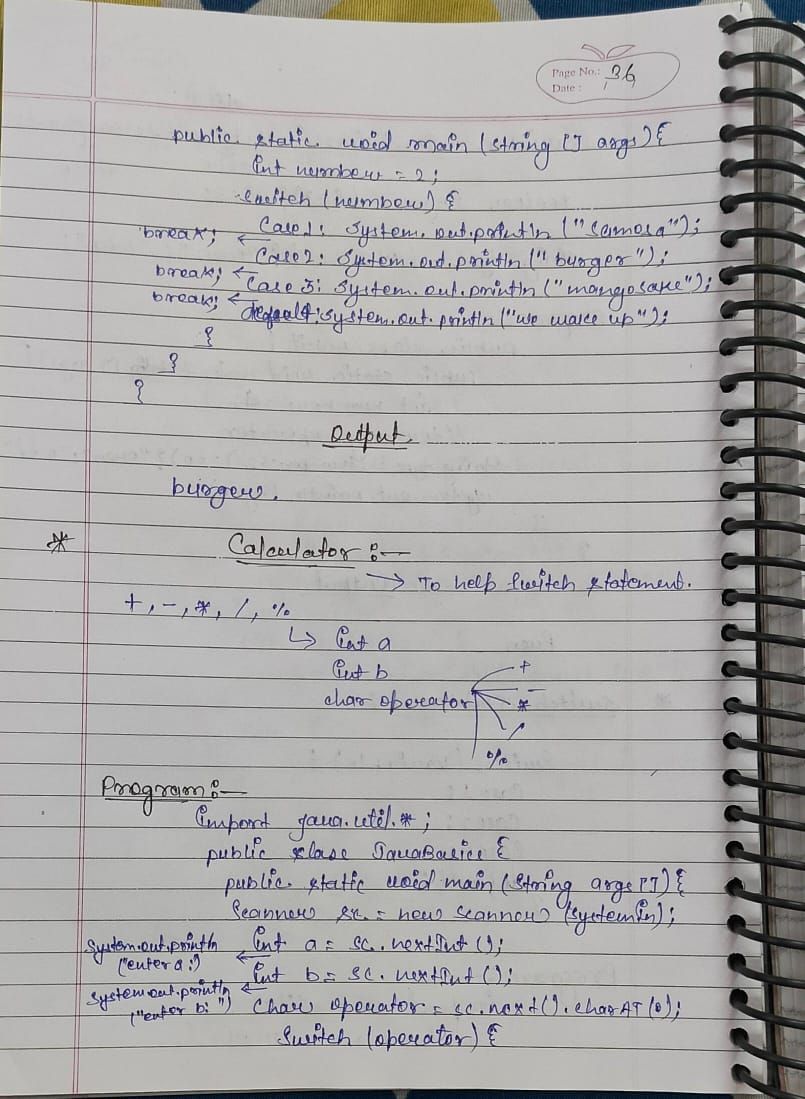 Page No.: 36
Date :
public static void main (string [] args) {
int number = 2;
switch (number) {
break; ← Case 1: System.out.println ("Samosa");
break; ← Case 2: System.out.println ("burger");
break; ← Case 3: System.out.println ("mangosake");
default: System.out.println ("we wake up");
}
}
}
Output
burger.
* Calculator :-
→ To help switch statement.
+, -, *, /, %
↳ int a
int b
char operator
+
-
*
/
%
Program :-
import java.util.*;
public class JavaBasics {
public static void main (String args []) {
Scanner sc = new Scanner (System.in);
System.out.println ("enter a:") ← int a = sc.nextInt ();
System.out.println ("enter b:") ← int b = sc.nextInt ();
Char operator = sc.next().charAT (0);
Switch (operator) {